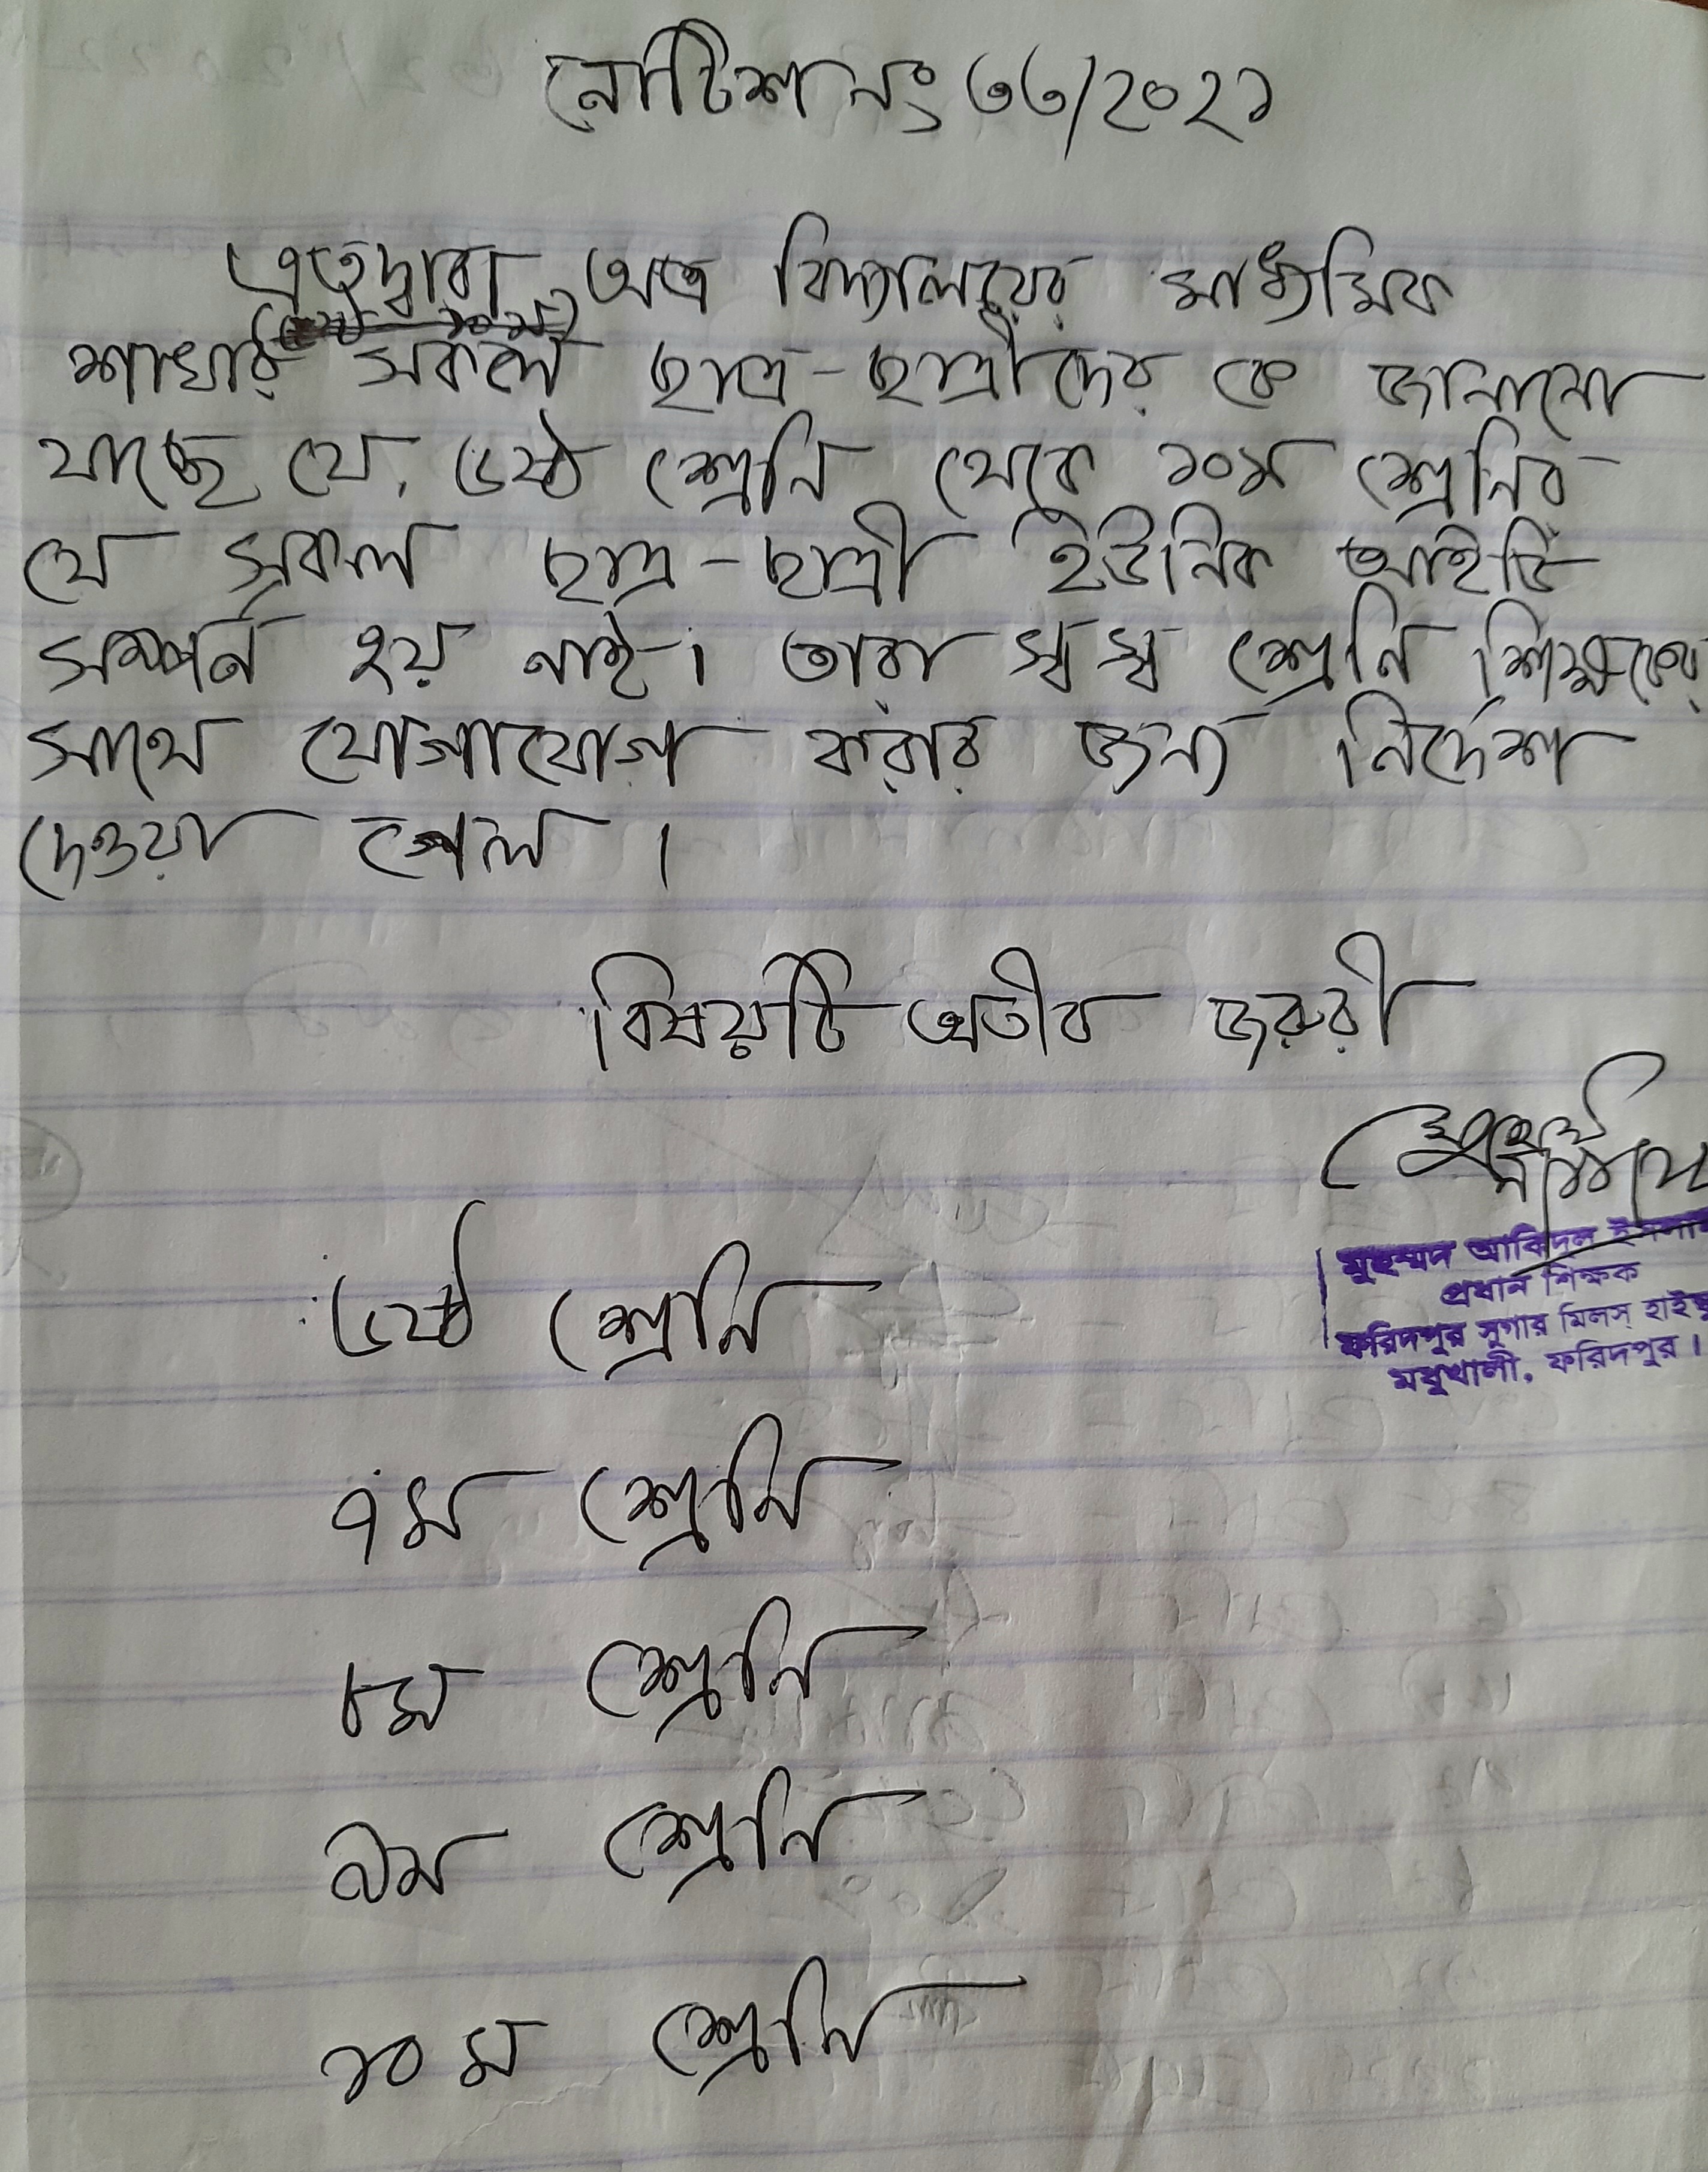 নোটিশ নং ৩৩/২০২১
এতদ্বারা অত্র বিদ্যালয়ের মাধ্যমিক
শাখার সকল ছাত্র-ছাত্রীদের কে জানানো
যাচ্ছে যে, ৬ষ্ঠ শ্রেনি থেকে ১০ম শ্রেনির
যে সকল ছাত্র-ছাত্রী ইউনিক আইডি
সম্পর্ন হয় নাই। তারা স্ব স্ব শ্রেনি শিক্ষকের
সাথে যোগাযোগ করার জন্য নির্দেশ
দেওয়া গেল।
বিষয়টি অতীব জরুরী
মুহম্মদ আকিদল ইসলাম
প্রধান শিক্ষক
ফরিদপুর সুগার মিলস্ হাইস্কুল
মধুখালী, ফরিদপুর।
৬ষ্ঠ শ্রেনি
৭ম শ্রেনি
৮ম শ্রেনি
৯ম শ্রেনি
১০ম শ্রেনি